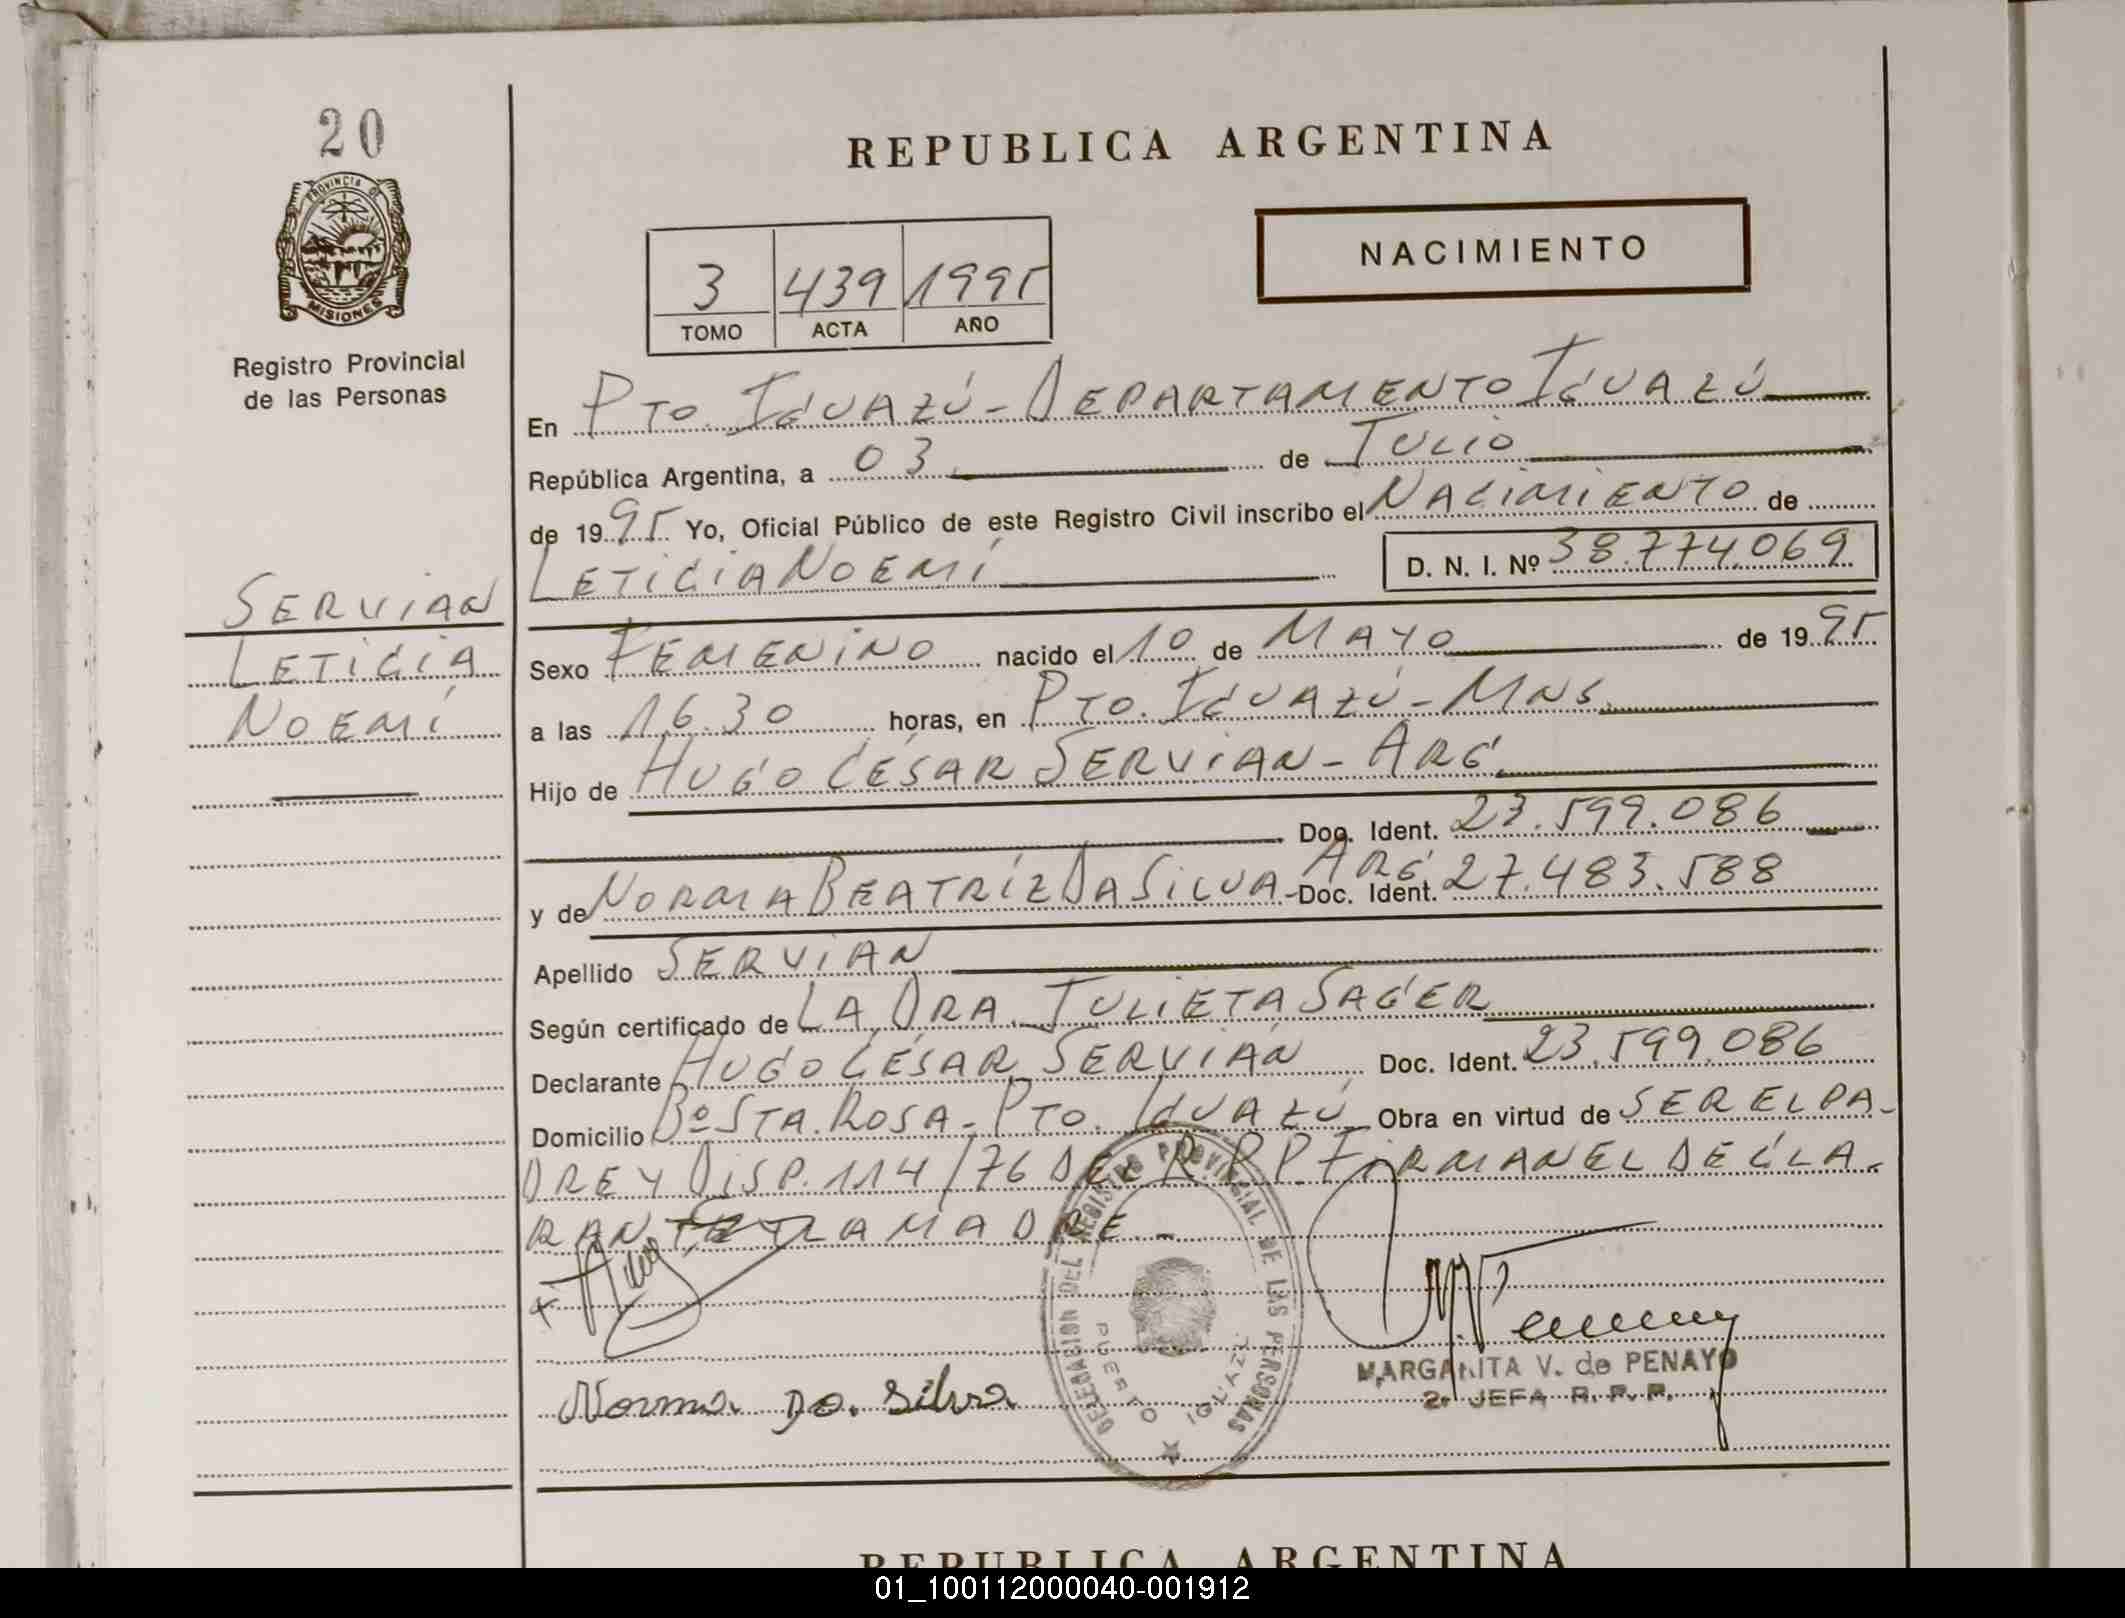 20
PROVINCIA DE
MISIONES
Registro Provincial
de las Personas
REPUBLICA ARGENTINA
NACIMIENTO
3 439 1995
TOMO ACTA AÑO
En PTO. IGUAZÚ - DEPARTAMENTO IGUAZÚ
República Argentina, a 03 de JULIO
de 1995 Yo, Oficial Público de este Registro Civil inscribo el NACIMIENTO de
LETICIA NOEMÍ D. N. I. Nº 38.774.069
SERVIAN
LETICIA
NOEMÍ
Sexo FEMENINO nacido el 10 de MAYO de 1995
a las 16.30 horas, en PTO. IGUAZÚ - MNS.
Hijo de HUGO CÉSAR SERVIAN - ARG.
Doc. Ident. 23.599.086
y de NORMA BEATRÍZ DA SILVA - ARG. Doc. Ident. 27.483.588
Apellido SERVIAN
Según certificado de LA DRA. JULIETA SAGER
Declarante HUGO CÉSAR SERVIAN Doc. Ident. 23.599.086
Domicilio Bº STA. ROSA - PTO. IGUAZÚ Obra en virtud de SER EL PA-
DRE Y DISP. 114/76 DEL R.P.P. FIRMAN EL DECLA-
RANTE Y LA MADRE. -
DELEGACION DEL REGISTRO PROVINCIAL DE LAS PERSONAS
PUERTO IGUAZU
Norma Da Silva
MARGARITA V. de PENAYO
2ª JEFA R. P. P.
REPUBLICA ARGENTINA
01_100112000040-001912